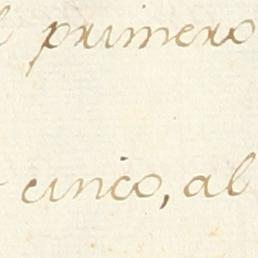 primero
cinco, al